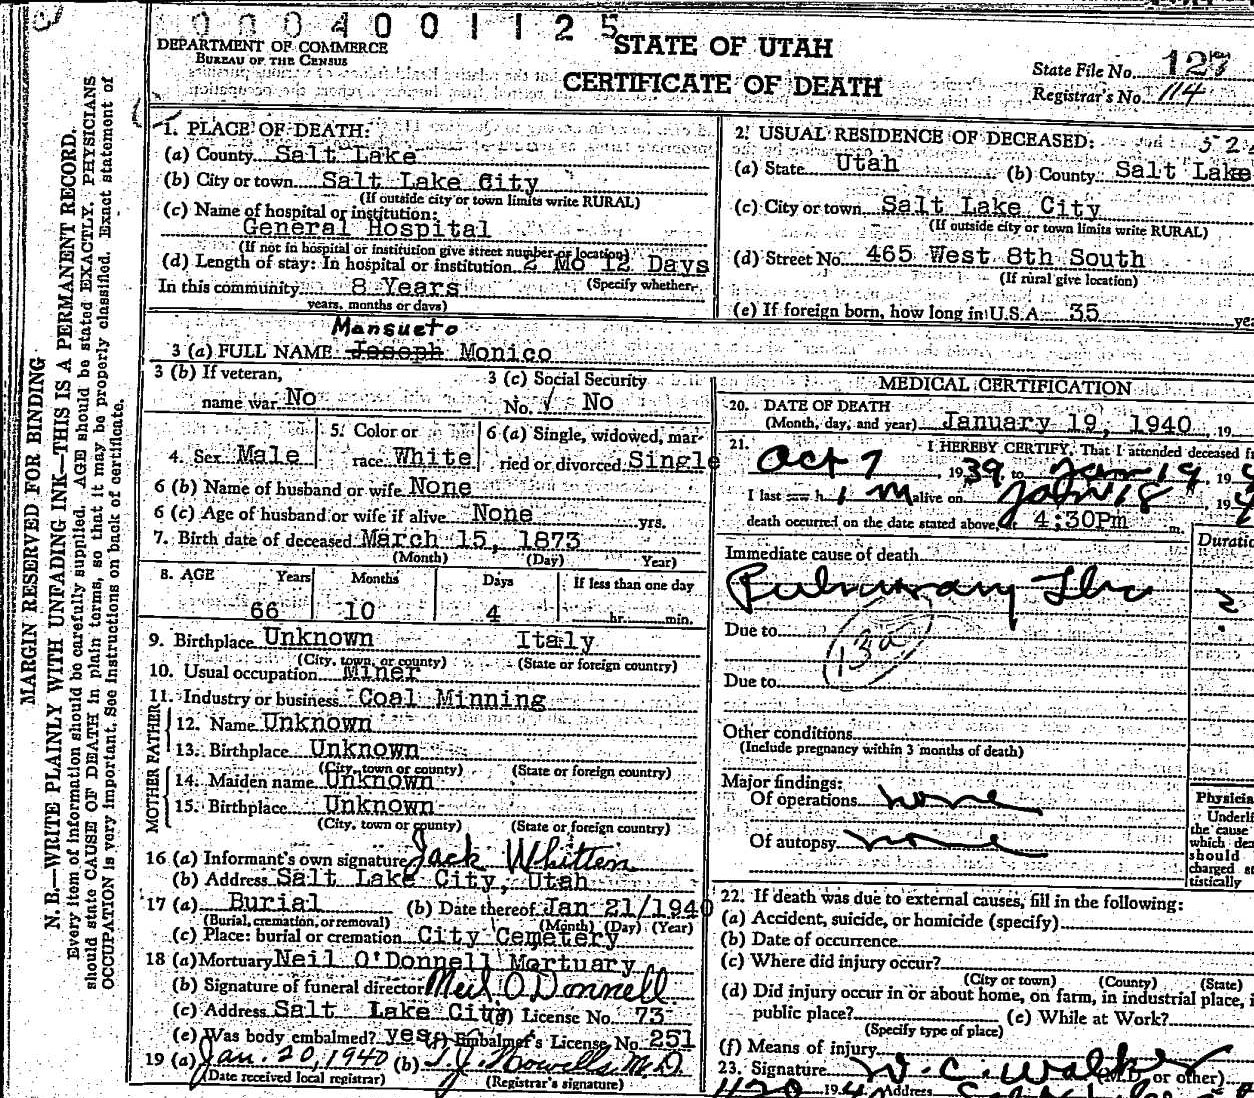 0004001125
DEPARTMENT OF COMMERCE
BUREAU OF THE CENSUS
STATE OF UTAH
CERTIFICATE OF DEATH
State File No. 127
Registrar's No. 114
MARGIN RESERVED FOR BINDING
N. B.—WRITE PLAINLY WITH UNFADING INK—THIS IS A PERMANENT RECORD.
Every item of information should be carefully supplied. AGE should be stated EXACTLY. PHYSICIANS
should state CAUSE OF DEATH in plain terms, so that it may be properly classified. Exact statement of
OCCUPATION is very important. See instructions on back of certificate.
1. PLACE OF DEATH:
(a) County Salt Lake
(b) City or town Salt Lake City
(If outside city or town limits write RURAL)
(c) Name of hospital or institution:
General Hospital
(If not in hospital or institution give street number or location)
(d) Length of stay: In hospital or institution 2 Mo 12 Days
(Specify whether
In this community 8 Years
years, months or days)
2. USUAL RESIDENCE OF DECEASED:
(a) State Utah (b) County Salt Lake
(c) City or town Salt Lake City
(If outside city or town limits write RURAL)
(d) Street No. 465 West 8th South
(If rural give location)
(e) If foreign born, how long in U.S.A. 35
Mansueto
3 (a) FULL NAME Joseph Monico
3 (b) If veteran,
name war No
3 (c) Social Security
No. √ No
4. Sex Male
5. Color or
race White
6 (a) Single, widowed, mar-
ried or divorced Single
6 (b) Name of husband or wife None
6 (c) Age of husband or wife if alive None yrs.
7. Birth date of deceased March 15, 1873
(Month) (Day) Year)
8. AGE Years Months Days If less than one day
66 10 4 hr. min.
9. Birthplace Unknown Italy
(City, town, or county) (State or foreign country)
10. Usual occupation Miner
11. Industry or business Coal Minning
FATHER
12. Name Unknown
13. Birthplace Unknown
(City, town or county) (State or foreign country)
MOTHER
14. Maiden name Unknown
15. Birthplace Unknown
(City, town or county) (State or foreign country)
16 (a) Informant's own signature Jack Whitten
(b) Address Salt Lake City, Utah
17 (a) Burial (b) Date thereof Jan 21/1940
(Burial, cremation, or removal) (Month) (Day) (Year)
(c) Place: burial or cremation City Cemetery
18 (a) Mortuary Neil O'Donnell Mortuary
(b) Signature of funeral director Neil O'Donnell
(c) Address Salt Lake City (d) License No. 73
(e) Was body embalmed? yes (f) Embalmer's License No. 251
19 (a) Jan. 20, 1940 (b) T. J. Howells M.D.
(Date received local registrar) (Registrar's signature)
MEDICAL CERTIFICATION
20. DATE OF DEATH
(Month, day, and year) January 19, 1940, 19
21. I HEREBY CERTIFY, That I attended deceased
Oct 7 1939, to Jan 19, 19
I last saw h i m alive on Jan 18, 19
death occurred on the date stated above, at 4:30Pm m.
Immediate cause of death
Pulmonary Tbc
Due to
13a
Due to
Other conditions
(Include pregnancy within 3 months of death)
Major findings:
Of operations none
Of autopsy none
22. If death was due to external causes, fill in the following:
(a) Accident, suicide, or homicide (specify)
(b) Date of occurrence
(c) Where did injury occur?
(City or town) (County) (State)
(d) Did injury occur in or about home, on farm, in industrial place,
public place? (e) While at Work?
(Specify type of place)
(f) Means of injury
23. Signature W. C. Walker (M.D. or other)
Address